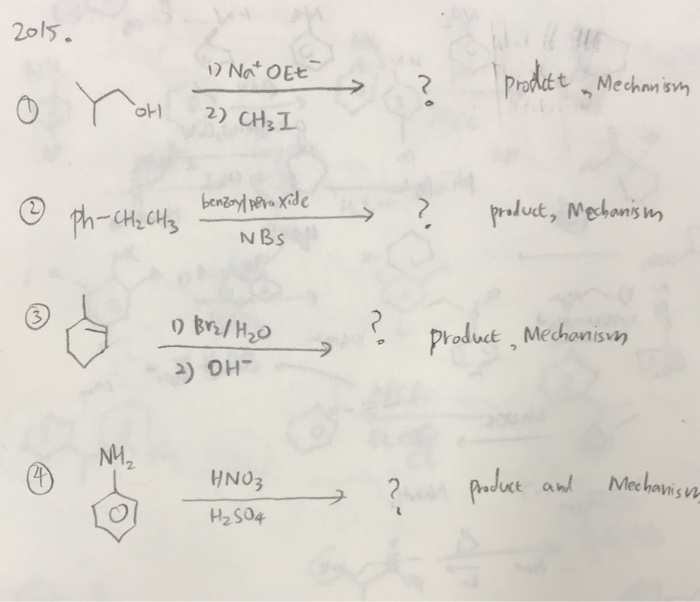 2015.
① OH 1) Na⁺ OEt⁻ 2) CH₃I ? product, Mechanism
② ph-CH₂CH₃ benzoylperoxide NBS ? product, Mechanism
③ 1) Br₂/H₂O 2) OH⁻ ? product, Mechanism
④ NH₂ HNO₃ H₂SO₄ ? product and Mechanism